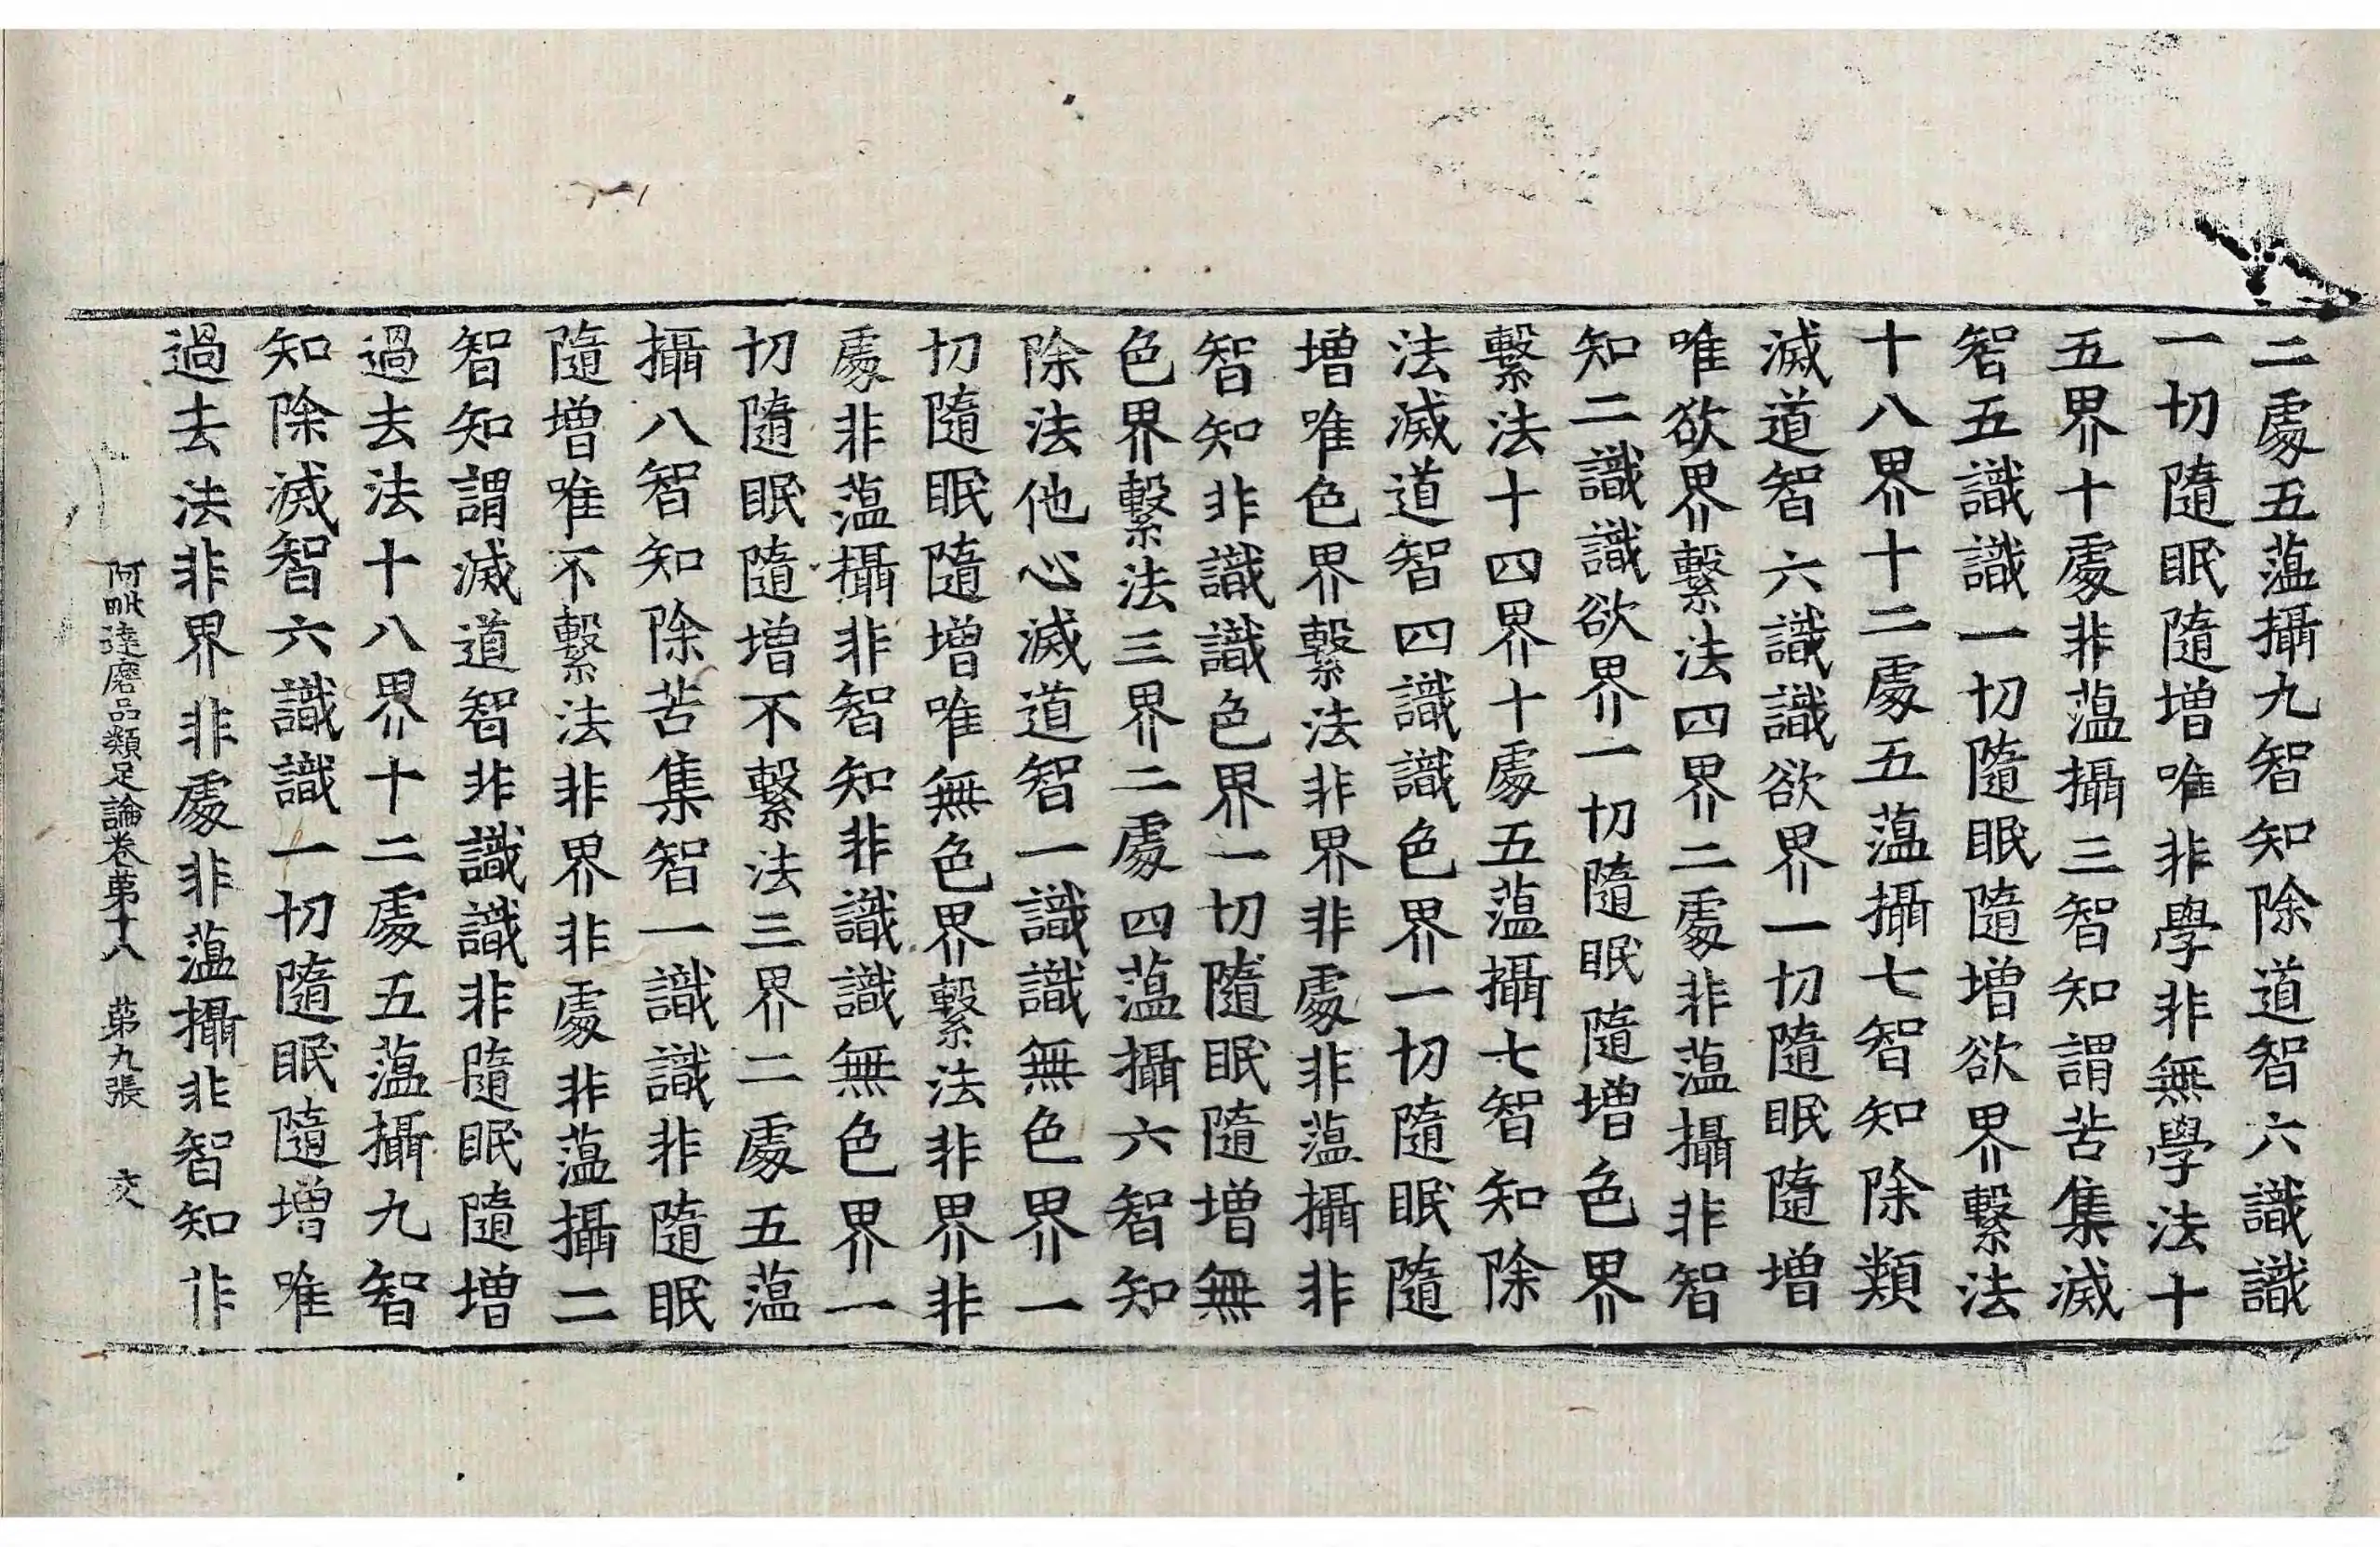 二處五蘊攝九智知除道智六識識
一切隨眠隨增唯非學非無學法十
五界十處非蘊攝三智知謂苦集滅
智五識識一切隨眠隨增欲界繫法
十八界十二處五蘊攝七智知除類
滅道智六識識欲界一切隨眠隨增
唯欲界繫法四界二處非蘊攝非智
知二識識欲界一切隨眠隨增色界
繫法十四界十處五蘊攝七智知除
法滅道智四識識色界一切隨眠隨
增唯色界繫法非界非處非蘊攝非
智知非識識色界一切隨眠隨增無
色界繫法三界二處四蘊攝六智知
除法他心滅道智一識識無色界一
切隨眠隨增唯無色界繫法非界非
處非蘊攝非智知非識識無色界一
切隨眠隨增不繫法三界二處五蘊
攝八智知除苦集智一識識非隨眠
隨增唯不繫法非界非處非蘊攝二
智知謂滅道智非識識非隨眠隨增
過去法十八界十二處五蘊攝九智
知除滅智六識識一切隨眠隨增唯
過去法非界非處非蘊攝非智知非
阿毗達磨品類足論卷苐十八 苐九張 交